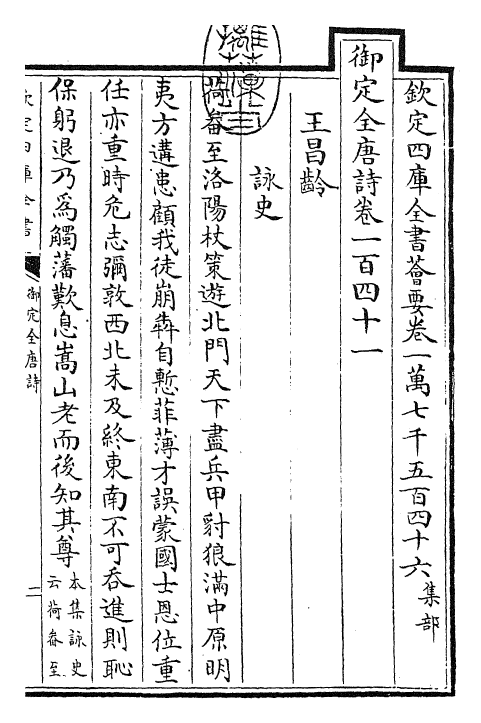 欽定四庫全書薈要卷一萬七千五百四十六 集部
御定全唐詩卷一百四十一
王昌齡
詠史
荷畚至洛陽杖策遊北門天下盡兵甲豺狼滿中原明
夷方遘患顧我徒崩犇自慙菲薄才誤蒙國士恩位重
任亦重時危志彌敦西北未及終東南不可吞進則恥
保躬退乃為觸藩歎息嵩山老而後知其尊 本集詠史
云荷畚至
欽定四庫全書
御定全唐詩